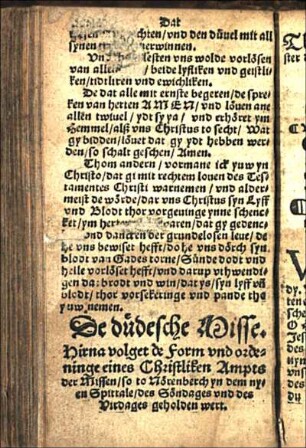 Dat
vnd den düuel mit all
synen werwinnen.
lesten vns wolde vorlösen
van allem / beide lyfliken vnd geistli-
ken / tidtliken vnd ewichliken.
De dat alle mit ernste begeren / de spre-
ken van herten AMEN / vnd löuen ane
allen twiuel / ydt sy ya / vnd erhöret ym
Hemmel / alß vns Christus to secht / Wat
gy bidden / löuet dat gy ydt hebben wer-
den / so schalt geschen / Amen.
Thom andern / vormane ick yuw yn
Christo / dat gi mit rechtem louen des Tes-
tamentes Christi warnemen / vnd alder-
meist de wörde / dar vns Christus syn Lyff
vnd Blodt thor vorgeuinge ynne schenc-
ket / ym herten waren / dat gy gedenc-
vnd dancken der grundelosen leue / de
he vns bewiset hefft / do he vns dörch syn
blodt van Gades torne / Sünde dodt vnd
helle vorlöset hefft / vnd darup vthwendi-
gen dat brodt vnd win / dat ys / syn lyff vñ
blodt / thor vorsekeringe vnd pande tho
yuw nemen.
De düdesche Misse.
Hirna volget de Form vnd orde-
ninge eines Christliken Ampts
der Missen / so to Nörenberch yn dem nyy-
en Spittale / des Söndages vnd des
Virdages geholden wert.